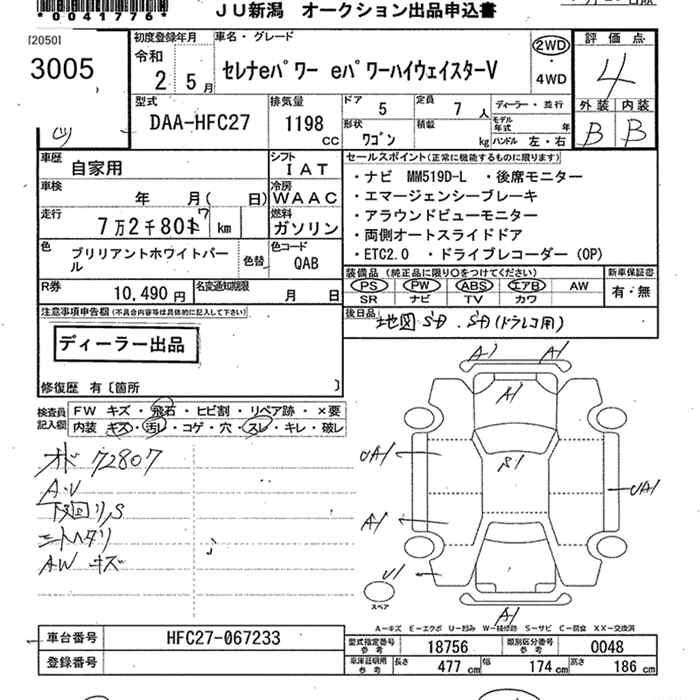 *0041776*
JU新潟 オークション出品申込書
[2050]
3005
初度登録年月
令和
2 年 5 月
車名・グレード
セレナeパワー eパワーハイウェイスターV
2WD
・
4WD
評価点
4
外装 内装
B B
型式
DAA-HFC27
排気量
1198
CC
ドア 5
定員 7 人
ディーラー・並行
モデル年式 年
形状 ワゴン
積載 kg
ハンドル 左・右
車歴 自家用
シフト IAT
車検 年 月( 日)
冷房 WAAC
走行 7万2千807 km
燃料 ガソリン
色 ブリリアントホワイトパール
色替
色コード QAB
R券 10,490 円
名変通知期限 月 日
セールスポイント(正常に機能するものに限ります)
・ナビ MM519D-L ・後席モニター
・エマージェンシーブレーキ
・アラウンドビューモニター
・両側オートスライドドア
・ETC2.0 ・ドライブレコーダー(OP)
装備品(純正品に限り○をつけてください)
PS PW ABS エアB AW
SR ナビ TV カワ
新車保証書
有・無
後日品 地図SD.SD(ドラレコ用)
注意事項申告欄(不具合内容等は具体的に記入して下さい)
ディーラー出品
修復歴 有〔箇所 〕
検査員記入欄
FW キズ・飛石・ヒビ割・リペア跡・×要
内装 キズ・汚レ・コゲ・穴・スレ・キレ・破レ
オド 72807
A・U
下廻リ,S
ニートヘタリ
AW キズ
A1 A1
A1
UA1
S1
UA1
A1
U1
A1
スペア
A−キズ E−エクボ U−凹み W−補修跡 S−サビ C−腐食 XX−交換済
車台番号 HFC27-067233
登録番号
型式指定番号 参考 18756
類別区分番号 参考 0048
車庫証明用 参考
長さ 477 cm
幅 174 cm
高さ 186 cm